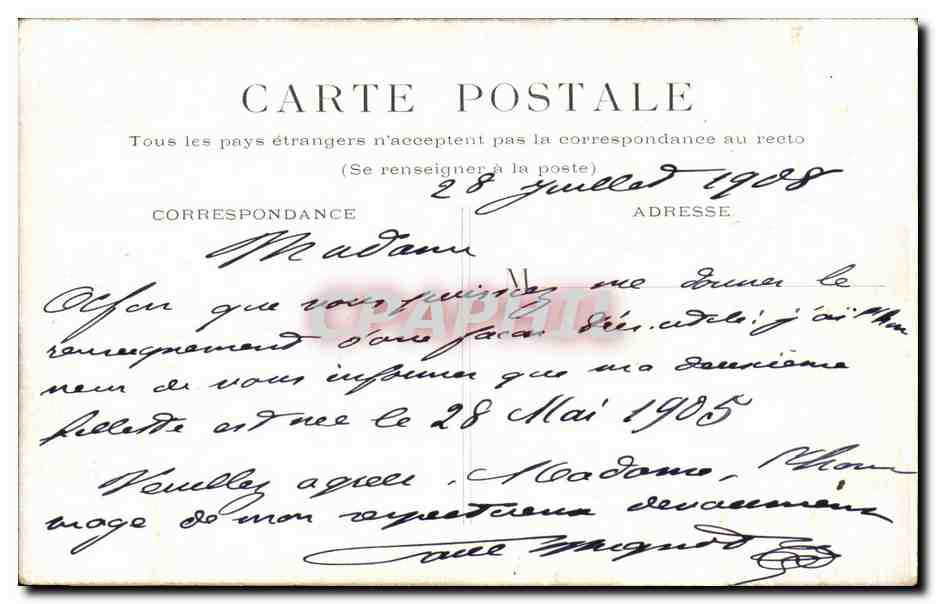 CARTE POSTALE
Tous les pays étrangers n'acceptent pas la correspondance au recto
(Se renseigner à la poste)
28 Juillet 1908
CORRESPONDANCE
ADRESSE
Madame
M
Afin que vous puissiez me donner le
renseignement d'une façon : j'ai l'hon
neur de vous informer que ma deuxième
fillette est née le 28 Mai 1905
Veuillez agréer, Madame, l'hom
mage de mon respectueux dévouement
Mignot
CPAPHIL